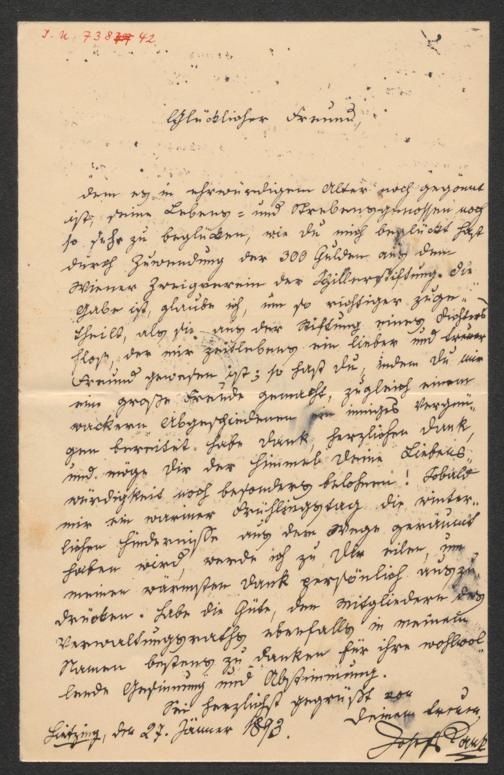 J. N. 73842
Glücklicher Freund,
dem es in ehrwürdigem Alter noch gegönnt
ist, seine Lebens- und Strebensgenossen noch
so sehr zu beglücken, wie du mich beglückt hast
durch Zuwendung der 300 Gulden aus dem
Wiener Zweigverein der Schillerstiftung. Die
Gabe ist, glaube ich, um so richtiger zuge-
theilt, als sie aus der Stiftung eines Dichters
floß, der mir zeitlebens ein lieber und treuer
Freund gewesen ist; so hast du, indem du mir
eine große Freude gemacht, zugleich einem
wackern Abgeschiedenen ein inniges Vergnü-
gen bereitet. Habe Dank, herzlichen Dank,
und möge dir der Himmel deine Liebens-
würdigkeit noch besonders belohnen! Sobald
mir ein warmer Frühlingstag die winter-
lichen Hindernisse aus dem Wege geräumt
haben wird, werde ich zu dir eilen, um
meinen wärmsten Dank persönlich auszu-
drücken. Habe die Güte, den Mitgliedern des
Verwaltungsraths ebenfalls in meinem
Namen bestens zu danken für ihre wohlwol-
lende Gesinnung und Abstimmung.
Sei herzlichst gegrüßt von
deinem treuen
Hietzing, den 27. Jänner 1893.
Josef Rank